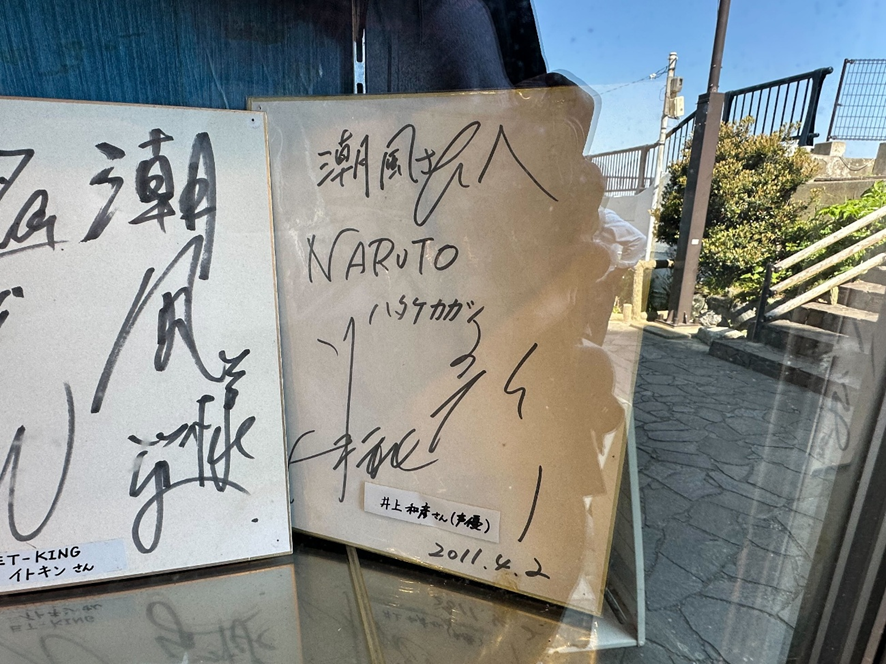 潮風
様
ET-KING
イトキンさん
潮風さん人
NARUTO
ハタケカカシ
井上和彦
井上和彦さん(声優)
2011.4.2